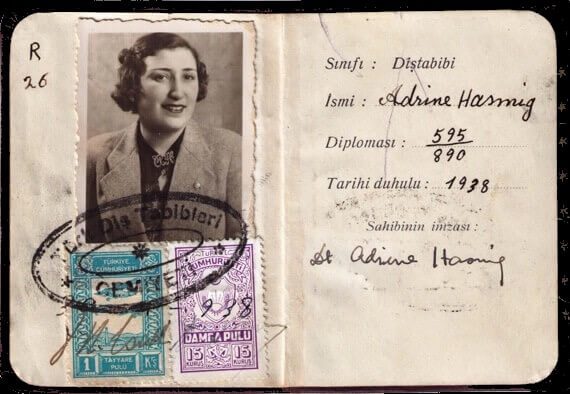 R
26
Diş Tabibleri
CEMİYETİ
TÜRKİYE
CUMHURİYETİ
1 TAYYARE PULU KŞ
TÜRKİYE
CUMHURİYETİ
938
DAMGA PULU
15 KURUŞ 15 KURUŞ
Sınıfı : Diştabibi
Ismi : Adrine Hasmig
Diploması : 595/890
Tarihi duhulu : 1938
Sahibinin imzası :
Dt Adrine Hasmig